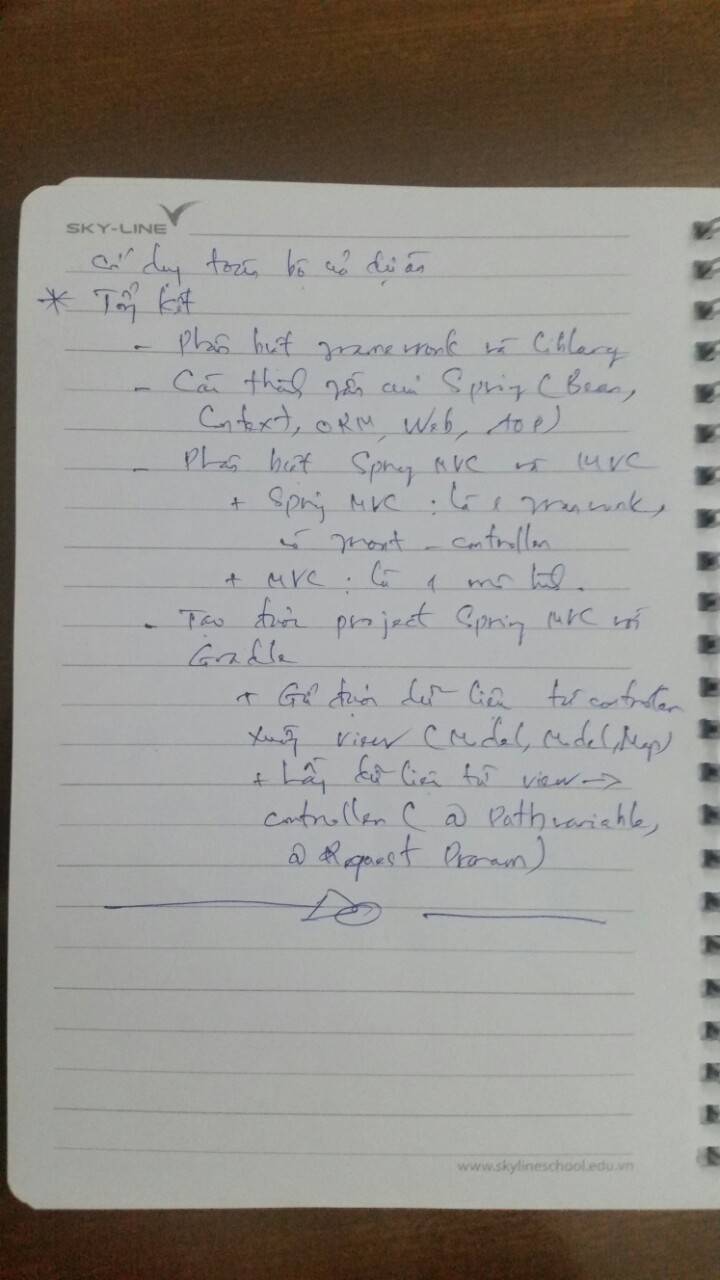 SKY-LINE
toàn bộ dự án
* Tổng kết
- Phân biệt framework và library
- Các thành phần của Spring (Bean,
Context, ORM, Web, AOP)
- Phân biệt Spring MVC và MVC
+ Spring MVC : là 1 framework,
có front - controller
+ MVC : là 1 mô hình.
- Tạo được project Spring MVC với
Gradle
+ Gửi được dữ liệu từ controller
xuống view (Model, Model, Map)
+ Lấy dữ liệu từ view →
controller ( @ Pathvariable,
@ Request Param)
www.skylineschool.edu.vn